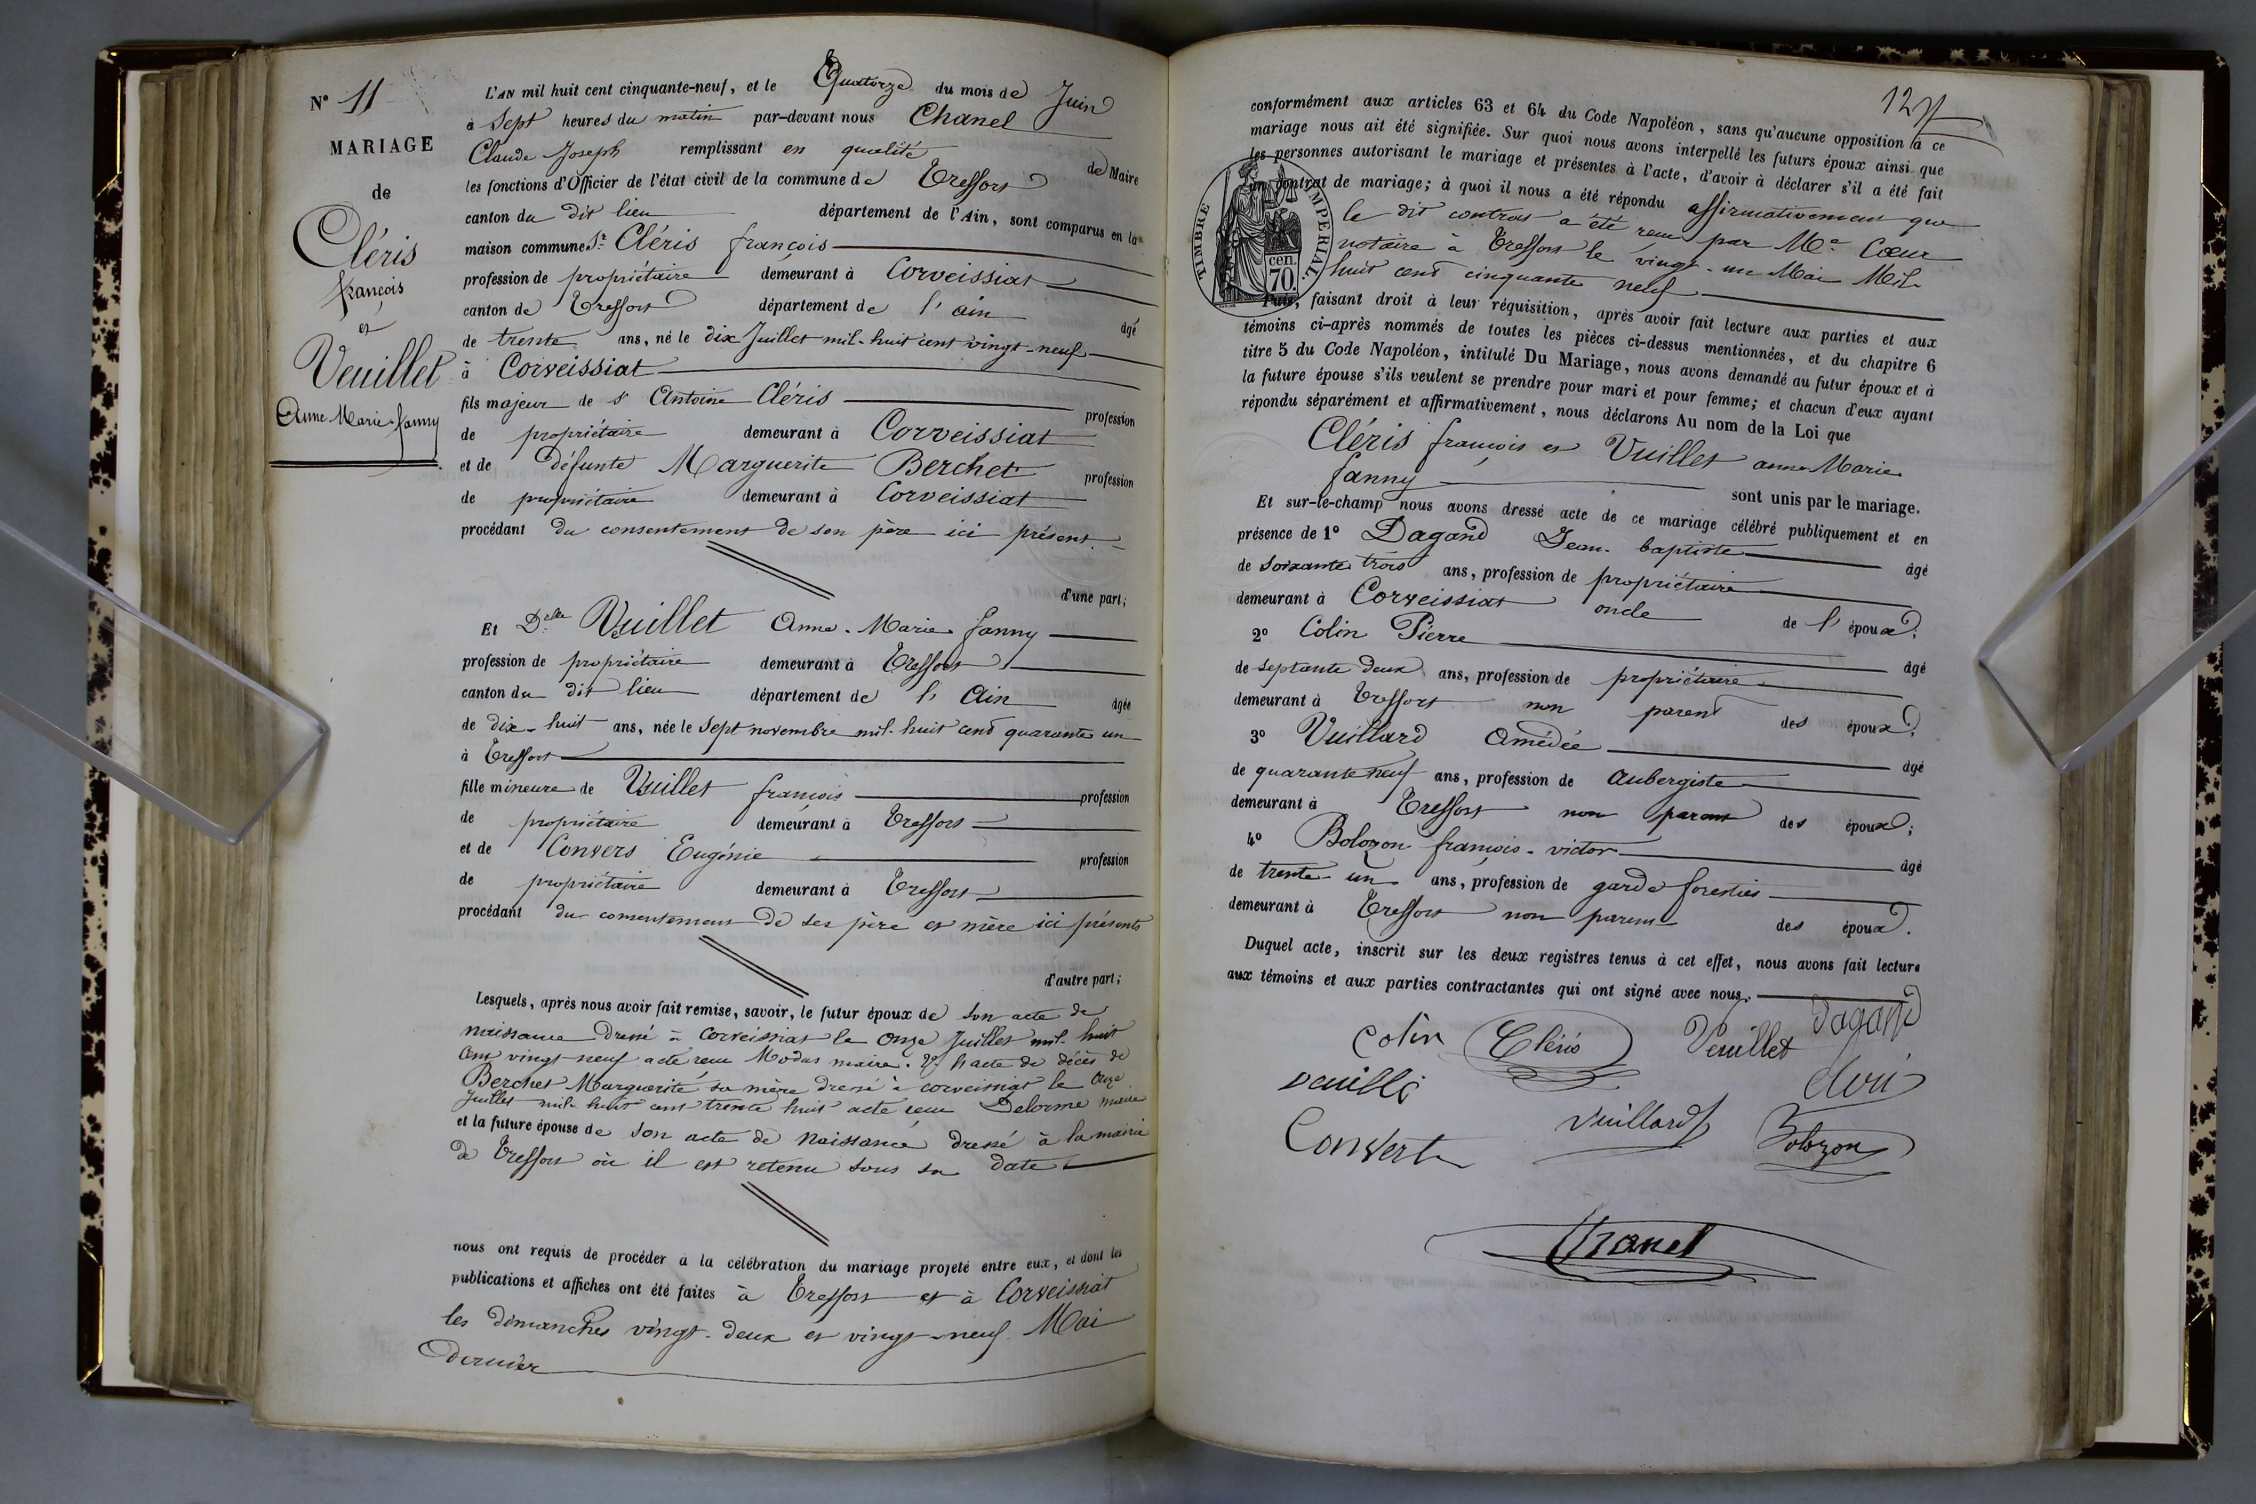 N° 11
MARIAGE
de
Cléris
françois
et
Veuillet
Anne Marie fanny
L'AN mil huit cent cinquante-neuf, et le Quatorze du mois de Juin
à Sept heures du matin par-devant nous Chanel
Claude Joseph remplissant en qualité de Maire
les fonctions d'Officier de l'état civil de la commune de Treffort
canton du dit lieu département de l'Ain, sont comparus en la
maison commune Sr Cléris françois
profession de propriétaire demeurant à Corveissiat
canton de Treffort département de l'ain âgé
de trente ans, né le dix Juillet mil-huit cent vingt-neuf
à Corveissiat
fils majeur de sr Antoine Cléris profession
de propriétaire demeurant à Corveissiat
et de défunte Marguerite Berchet profession
de propriétaire demeurant à Corveissiat
procédant du consentement de son père ici présent.
d'une part;
Et Delle Vuillet Anne-Marie fanny
profession de propriétaire demeurant à Treffort
canton du dit lieu département de l'Ain âgée
de dix-huit ans, née le Sept novembre mil-huit cent quarante un
à Treffort
fille mineure de Vuillet françois profession
de propriétaire demeurant à Treffort
et de Convers Eugénie profession
de propriétaire demeurant à Treffort
procédant du consentement de ses père et mère ici présents
d'autre part;
Lesquels, après nous avoir fait remise, savoir, le futur époux de son acte de
naissance dressé à Corveissiat le onze Juillet mil huit
cent vingt-neuf acte reçu Modas maire. 2° l'acte de décès de
Berchet Marguerite sa mère dressé à corveissiat le onze
Juillet mil huit cent trente huit acte reçu Delorme maire
et la future épouse de son acte de Naissance dressé à la mairie
de Treffort où il est retenu sous sa date
nous ont requis de procéder à la célébration du mariage projeté entre eux, et dont les
publications et affiches ont été faites à Treffort et à Corveissiat
les dimanches vingt-deux et vingt-neuf Mai
dernier
conformément aux articles 63 et 64 du Code Napoléon, sans qu'aucune opposition à ce
mariage nous ait été signifiée. Sur quoi nous avons interpellé les futurs époux ainsi que
les personnes autorisant le mariage et présentes à l'acte, d'avoir à déclarer s'il a été fait
un contrat de mariage; à quoi il nous a été répondu affirmativement que
le dit contrat a été reçu par Me Cœur
notaire à Treffort le vingt-un Mai Mil
huit cent cinquante neuf
TIMBRE IMPÉRIAL.
cen.
70.
Puis, faisant droit à leur réquisition, après avoir fait lecture aux parties et aux
témoins ci-après nommés de toutes les pièces ci-dessus mentionnées, et du chapitre 6
titre 5 du Code Napoléon, intitulé Du Mariage, nous avons demandé au futur époux et à
la future épouse s'ils veulent se prendre pour mari et pour femme; et chacun d'eux ayant
répondu séparément et affirmativement, nous déclarons Au nom de la Loi que
Cléris françois et Vuillet anne Marie
fanny sont unis par le mariage.
Et sur-le-champ nous avons dressé acte de ce mariage célébré publiquement et en
présence de 1° Dagand Jean-baptiste âgé
de soixante trois ans, profession de propriétaire
demeurant à Corveissiat oncle de l'époux;
2° Colin Pierre âgé
de septante deux ans, profession de propriétaire
demeurant à Treffort non parent des époux;
3° Vuillard Amédée âgé
de quarante neuf ans, profession de Aubergiste
demeurant à Treffort non parent des époux;
4° Bolozon françois-victor âgé
de trente-un ans, profession de garde forestier
demeurant à Treffort non parent des époux.
Duquel acte, inscrit sur les deux registres tenus à cet effet, nous avons fait lecture
aux témoins et aux parties contractantes qui ont signé avec nous.
Colin Cléris Veuillet Dagand
Vuillard
Convert Bolozon
Chanel